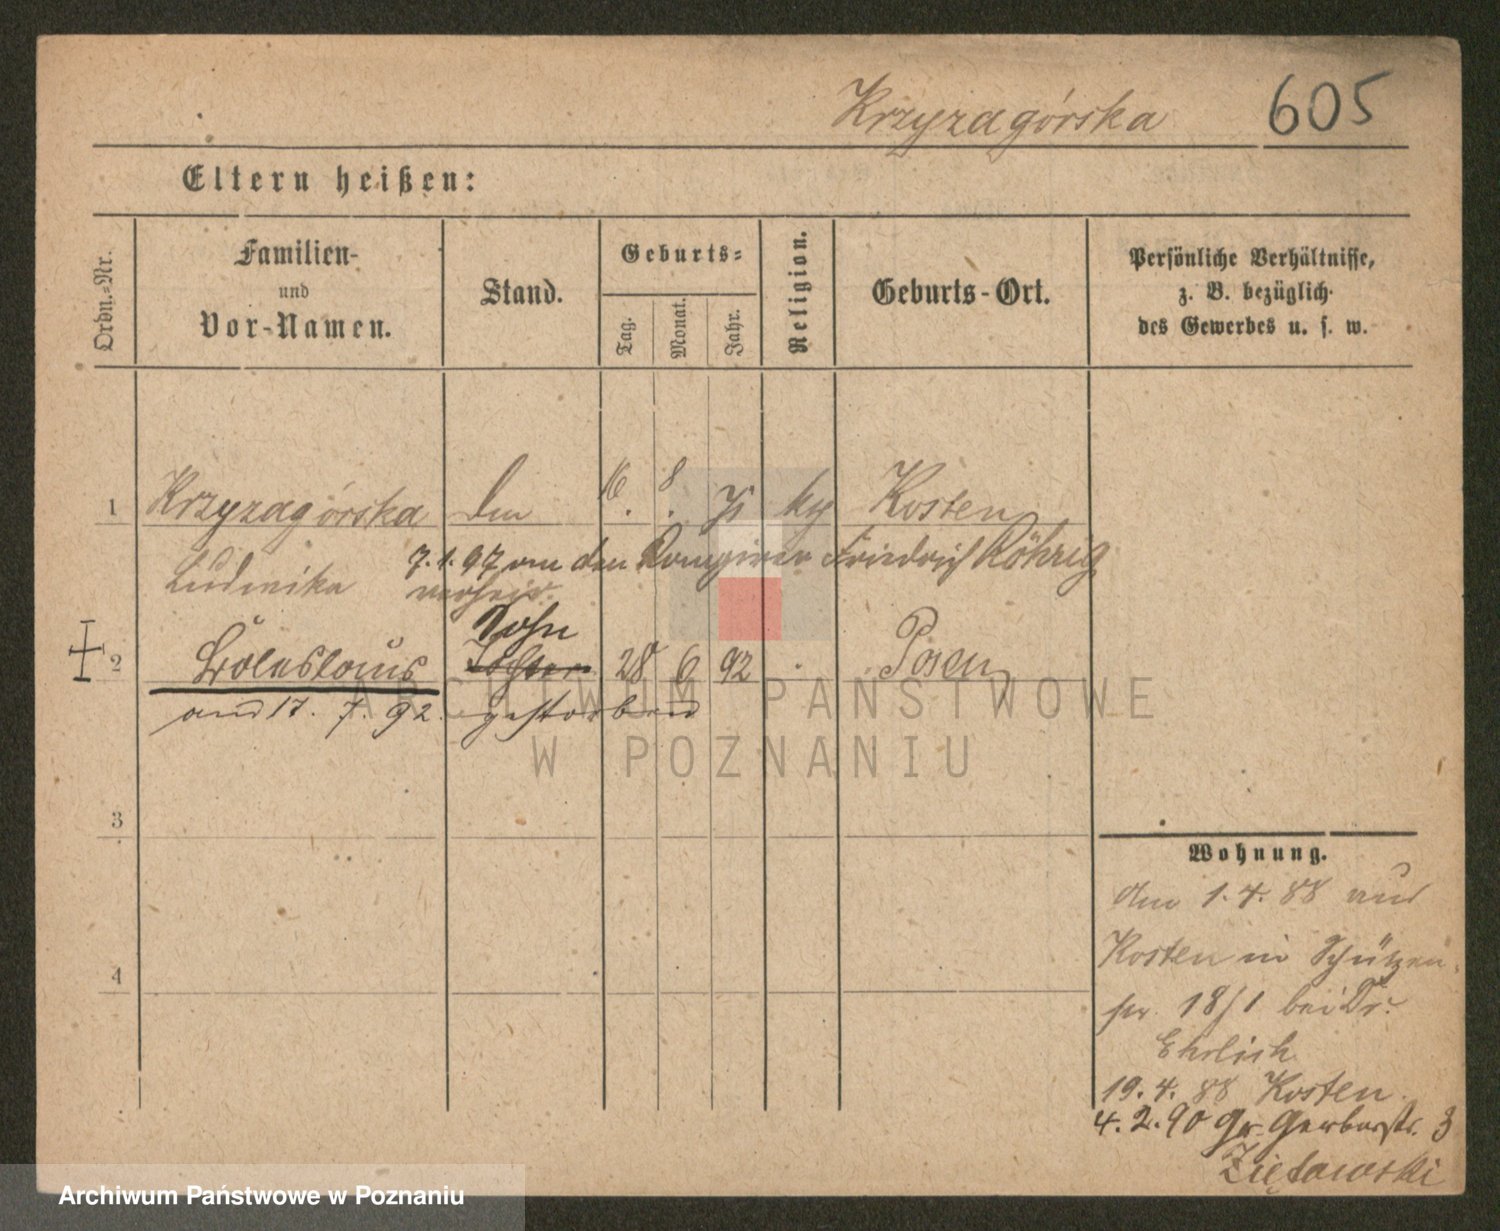 Krzyzagórska 605
Eltern heißen:
Ordn.-Nr.
Familien-
und
Vor-Namen.
Stand.
Geburts-
Tag.
Monat.
Jahr.
Religion.
Geburts-Ort.
Persönliche Verhältnisse,
z. B. bezüglich
des Gewerbes u. s. w.
1 Krzyzagórska 16. 8. Kosten
Ludwika 7.1.97 an den Friedrich Röhrig
verheir.
Sohn
2 Boleslaus Tochter 28 6 92 Posen
17. 7. 92. gestorben
3
4
Wohnung.
den 1.4.88 aus
Kosten in Schützen
str. bei Dr.
Ehrlich
19.4.88 Kosten
4.2.90 Gr. Gerberstr. 3
Ziętowski
ARCHIWUM PAŃSTWOWE
W POZNANIU
Archiwum Państwowe w Poznaniu